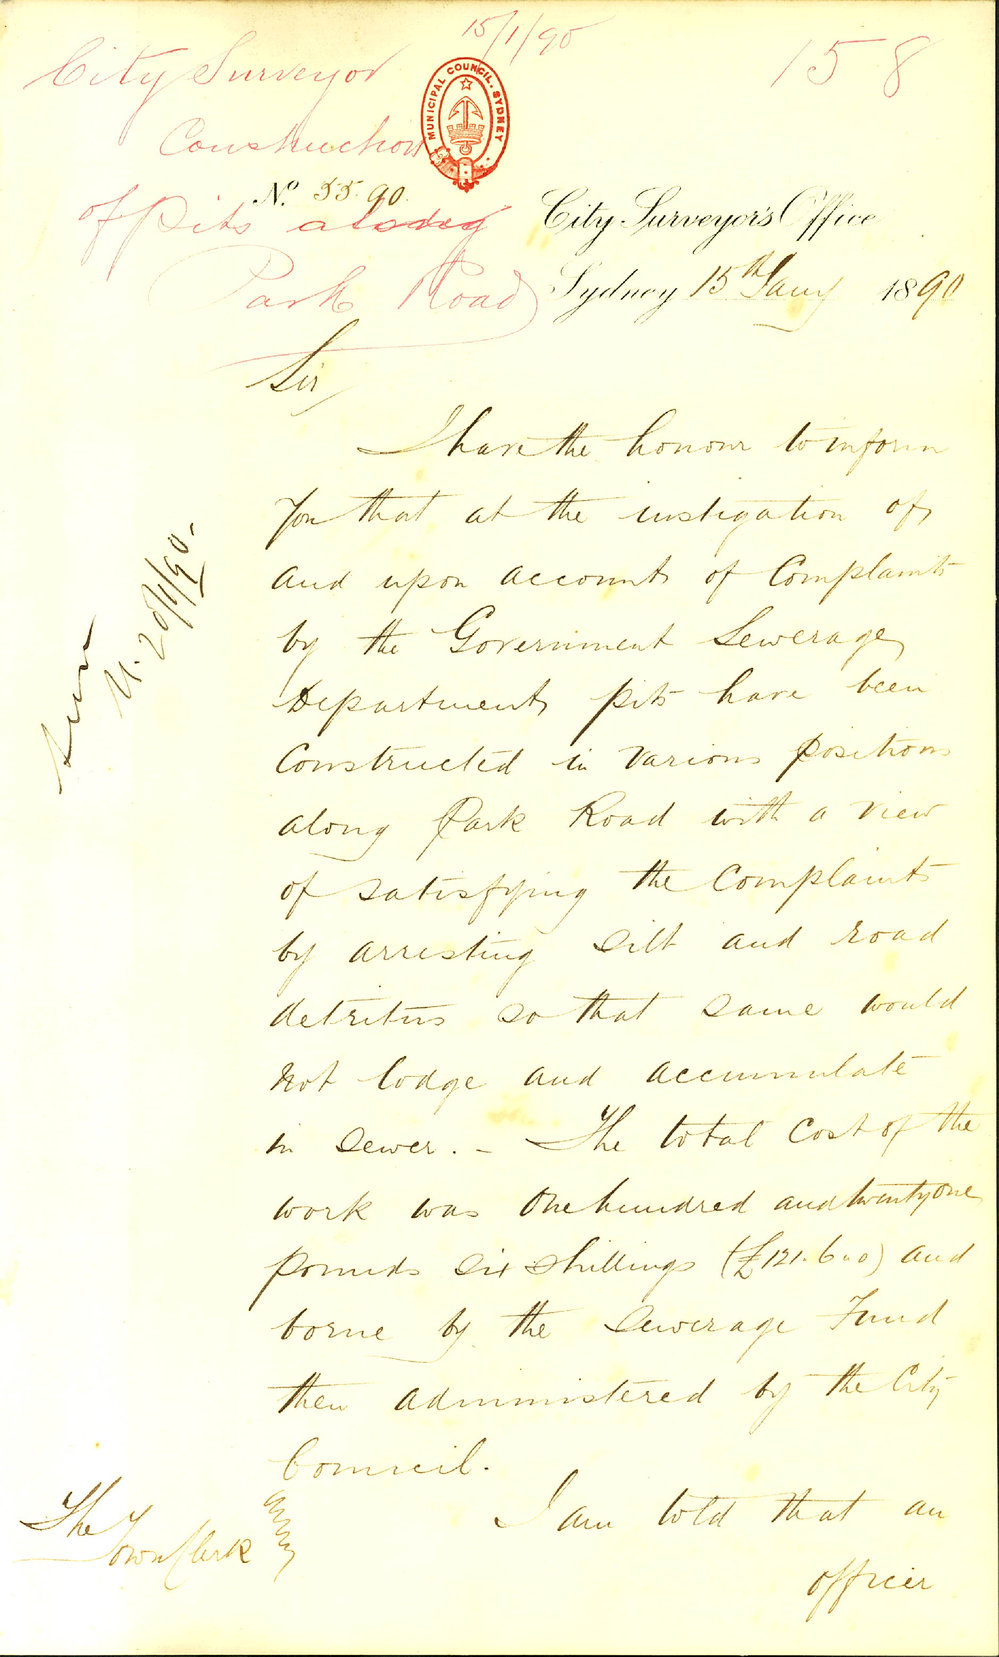 15/1/90
158
City Surveyor
Construction
of pits along
Park Road
MUNICIPAL COUNCIL. SYDNEY
No. 55.90.
City Surveyor's Office
Sydney 15th Jany 1890
Sir
I have the honour to inform
you that at the instigation of,
and upon account of Complaints
by the Government Sewerage
Department, pits have been
Constructed in various positions
along Park Road with a view
of satisfying the Complaints
by arresting silt and road
detritus so that same would
not lodge and accumulate
in sewer. - The total cost of the
work was One hundred and twenty one
pounds six shillings (£121.6.0) and
borne by the Sewerage Fund
then administered by the City
Council.
I am told that an
officer
The Town Clerk
20/1/90.